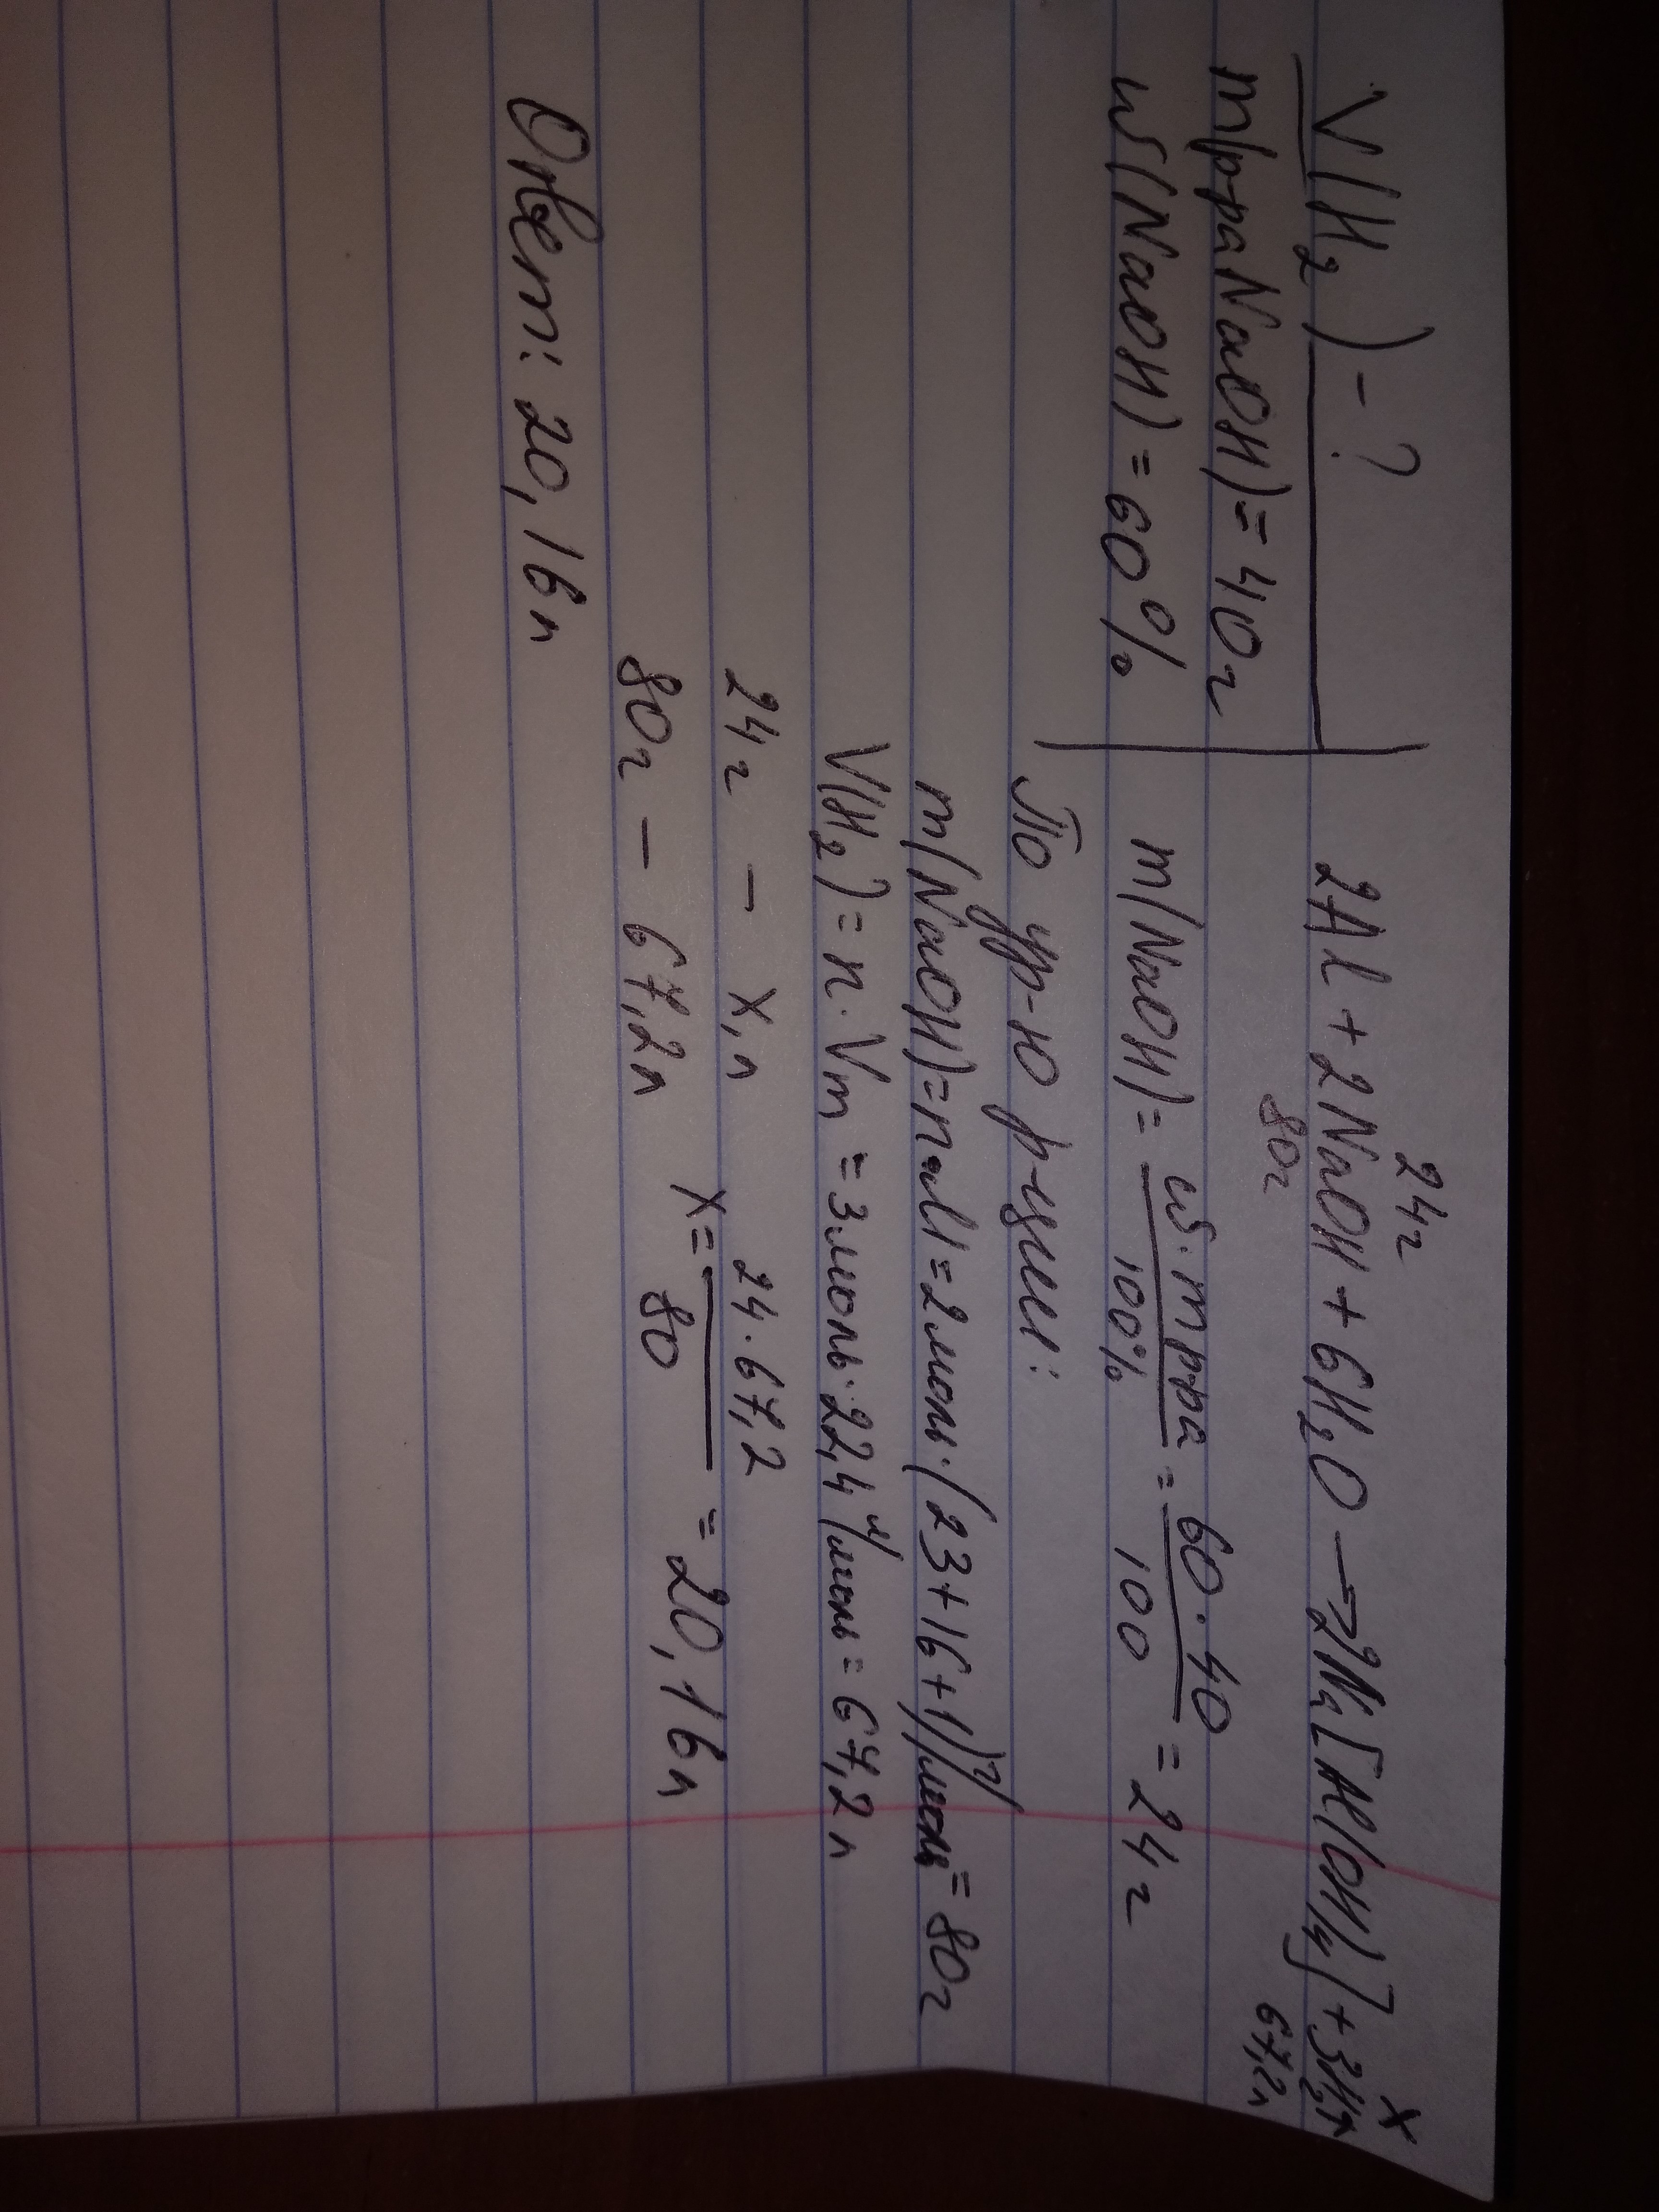 V(H₂) - ?
m(р-ра NaOH) = 40г
w(NaOH) = 60%
24г x
2Al + 2NaOH + 6H₂O → 2Na[Al(OH)₄] + 3H₂↑
80г 67,2л
m(NaOH) = w·mр-ра / 100% = 60·40 / 100 = 24г
По ур-ю р-ции:
m(NaOH) = n·M = 2моль·(23+16+1)г/моль = 80г
V(H₂) = n·Vm = 3моль·22,4 л/моль = 67,2л
24г — x, л
80г — 67,2л
x = 24·67,2 / 80 = 20,16л
Ответ: 20,16л